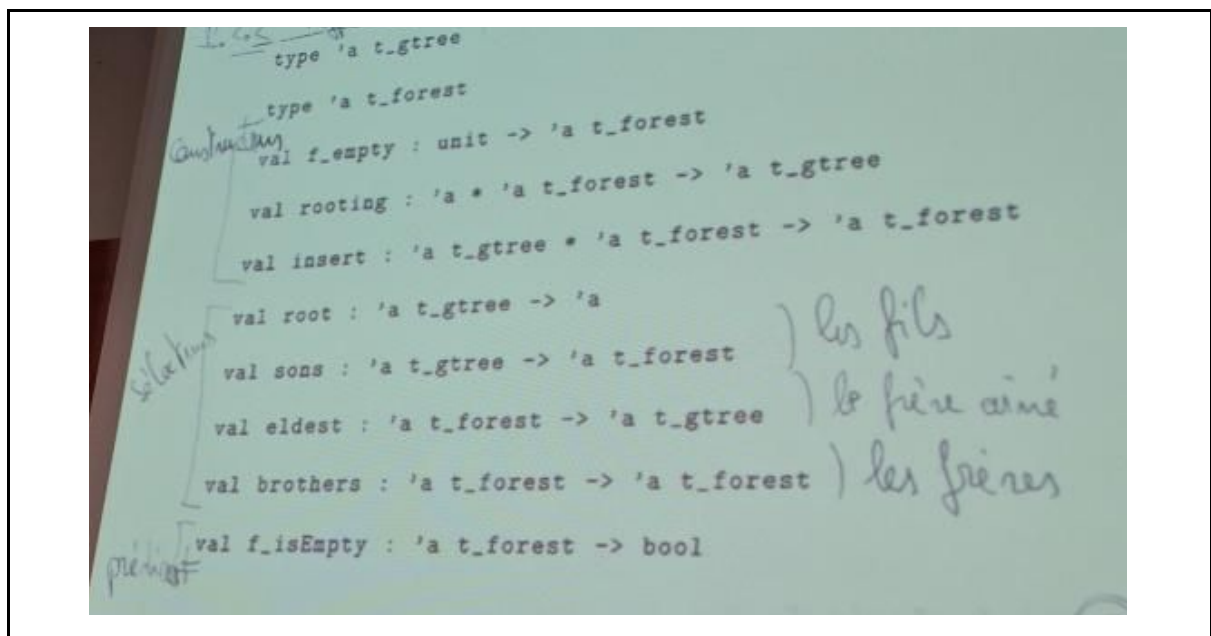 type 'a t_gtree
type 'a t_forest
constructeurs
val f_empty : unit -> 'a t_forest
val rooting : 'a * 'a t_forest -> 'a t_gtree
val insert : 'a t_gtree * 'a t_forest -> 'a t_forest
val root : 'a t_gtree -> 'a
sélecteurs
val sons : 'a t_gtree -> 'a t_forest ) les fils
val eldest : 'a t_forest -> 'a t_gtree ) le frère aîné
val brothers : 'a t_forest -> 'a t_forest ) les frères
val f_isEmpty : 'a t_forest -> bool
prédicat